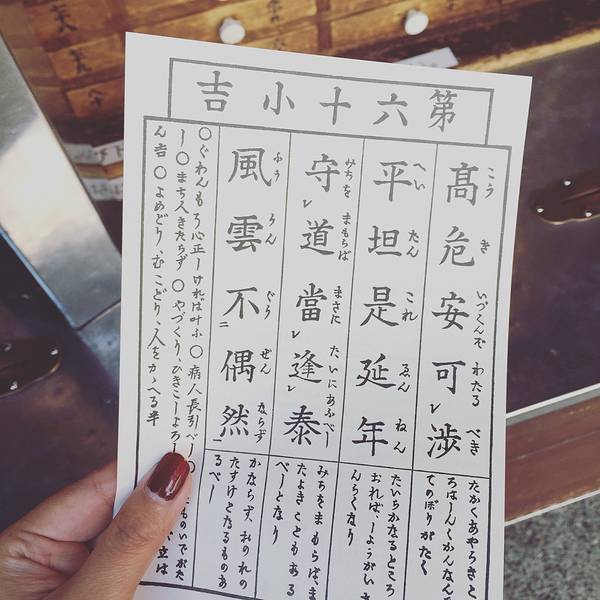 第六十小吉
高危安可渉
こうきいづくんぞわたるべき
たかくあやうきところはしんくかんなんしてのぼりがたく
平坦是延年
へいたんこれゑんねん
たいらかなるところにおれば、しようがいあんらくなり
守道當逢泰
みちをまもらばまさにたいにあふべし
みちをまもらば、またよきこともあるべしとなり
風雲不偶然
ふううんぐうぜんならず
かならず、おのれのたすけとなるものあるべし
○ぐわんもう心正しければ叶ふ○病人長引べし○
○まち人きたらず○やづくり、ひきこしよろし
ん吉○よめどり、むこどり、人をかゝへる半